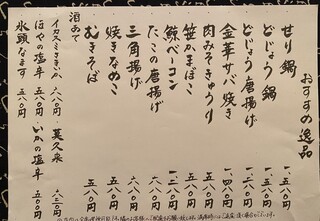 おすすめ逸品
せり鍋 一、五八〇円
どじょう鍋 一、五八〇円
どじょう唐揚げ 一、二八〇円
金華サバ焼き 一、四八〇円
肉みそきゅうり 五八〇円
笹かまぼこ 五八〇円
鯨ベーコン 一、二八〇円
たこの唐揚げ 六八〇円
三角揚げ 六八〇円
焼きなめこ 五八〇円
むきそば 五八〇円
酒あて
イカスミさきいか 六八〇円
莫久来 六三〇円
ほやの塩辛 五八〇円
いかの塩辛 五〇〇円
氷頭なます 五八〇円